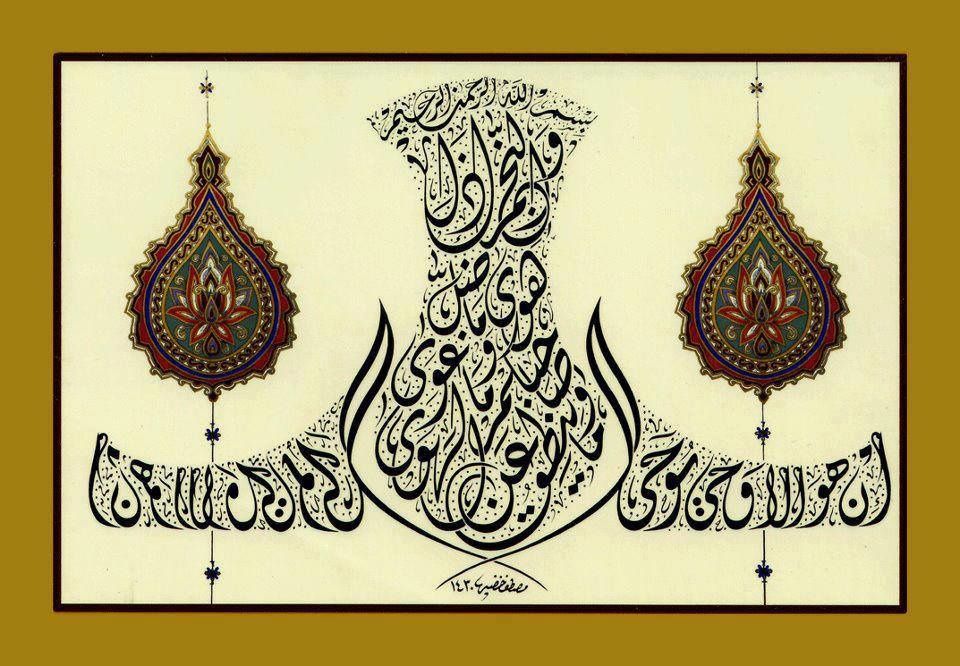 بسم الله الرحمن الرحيم
والنجم إذا
هوى ما ضل
صاحبكم وما غوى
وما ينطق عن الهوى
إن هو إلا وحي يوحى
مصطفى خضير ١٤٣٠